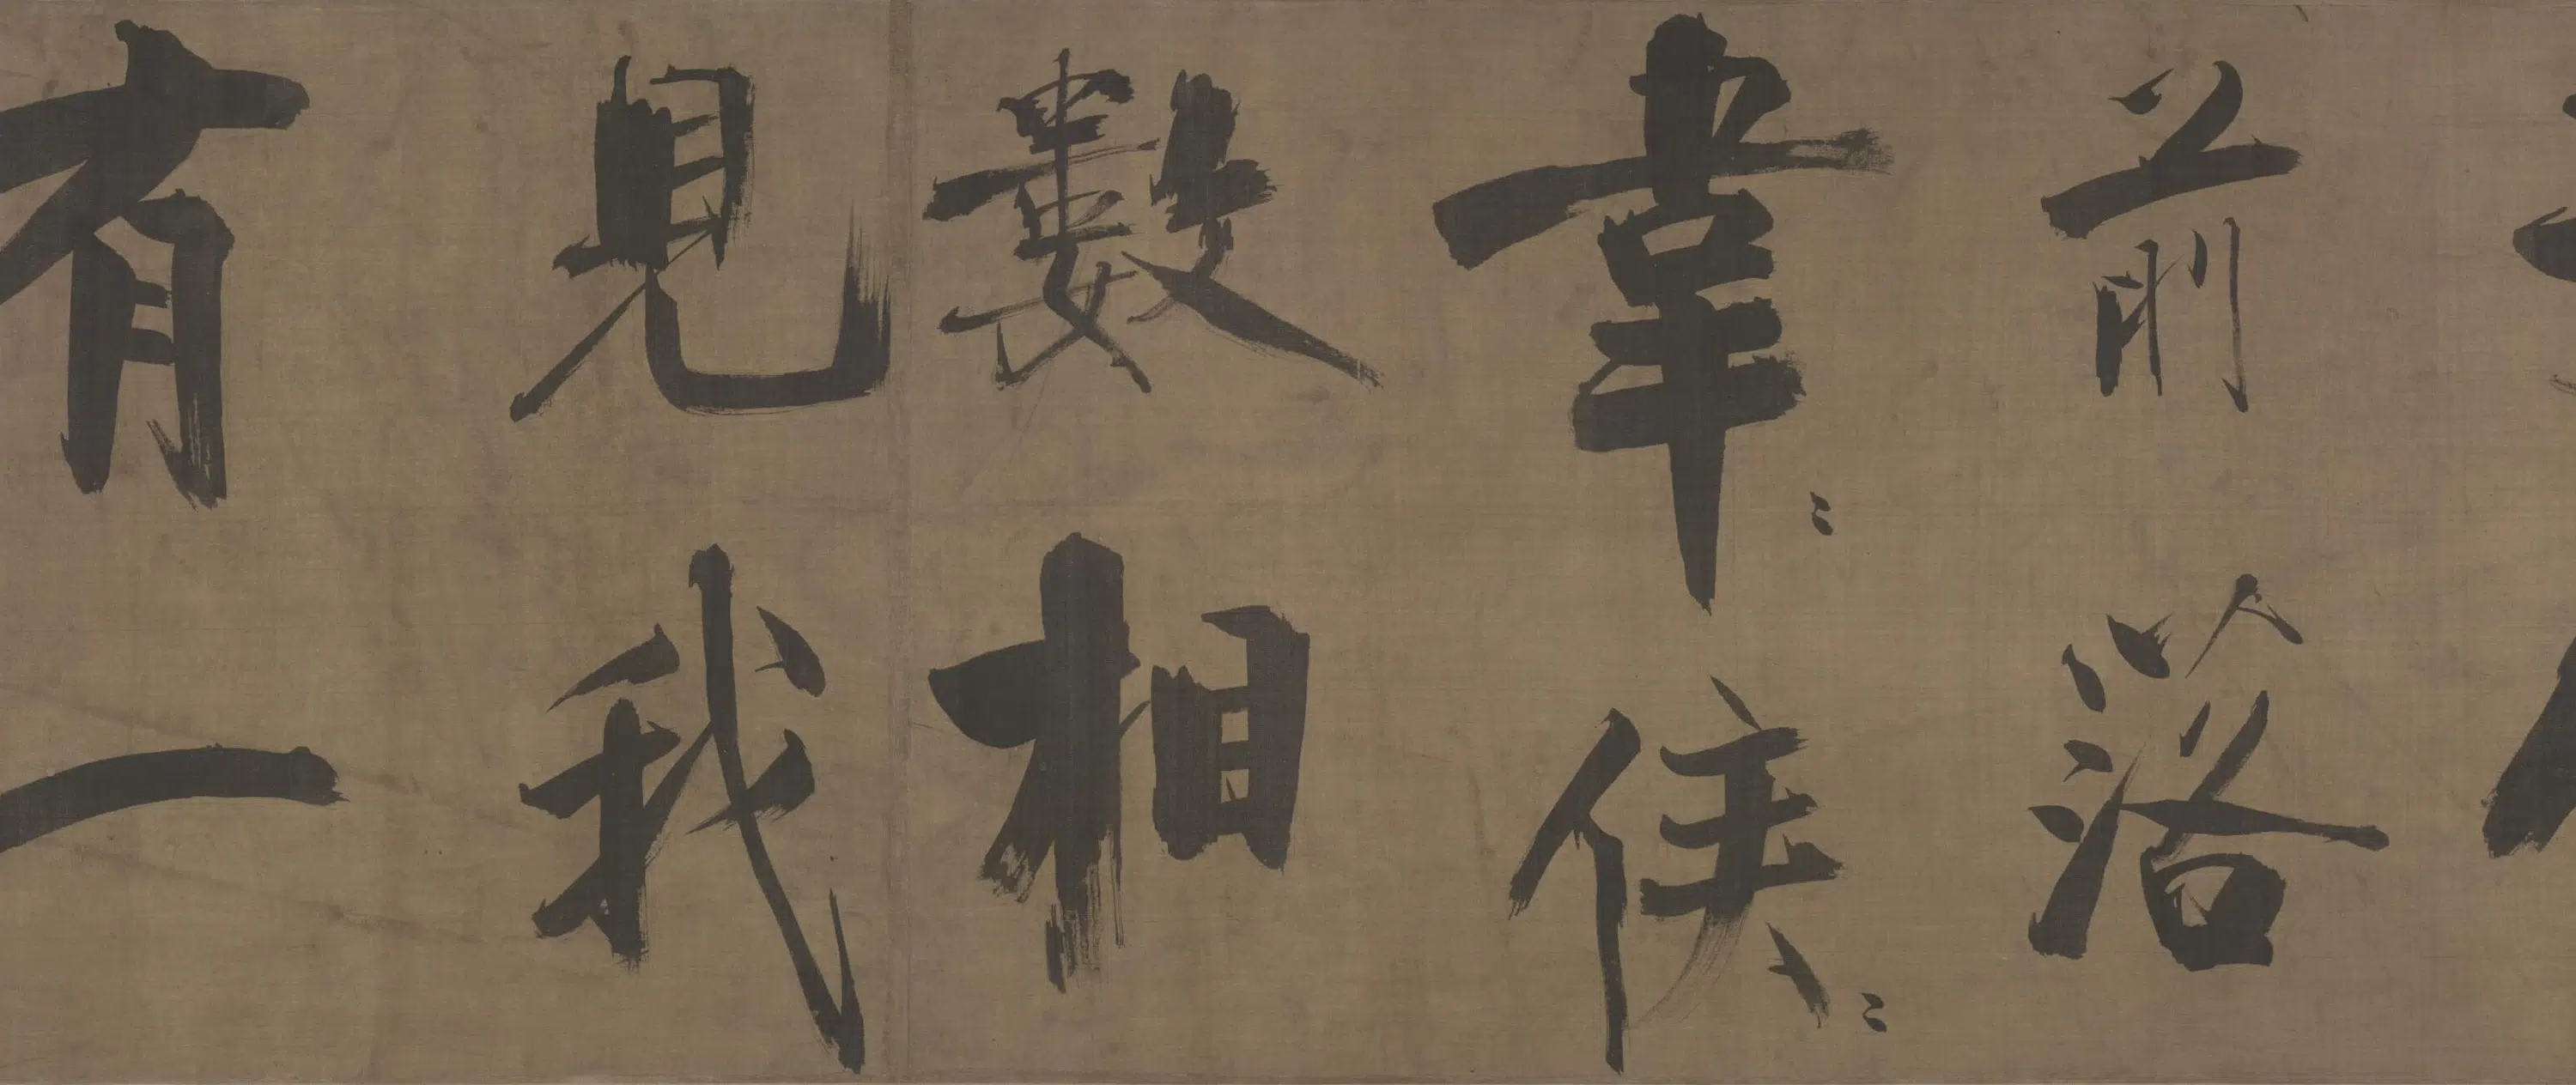 前落
韋〻侯〻
數相
見我
有一